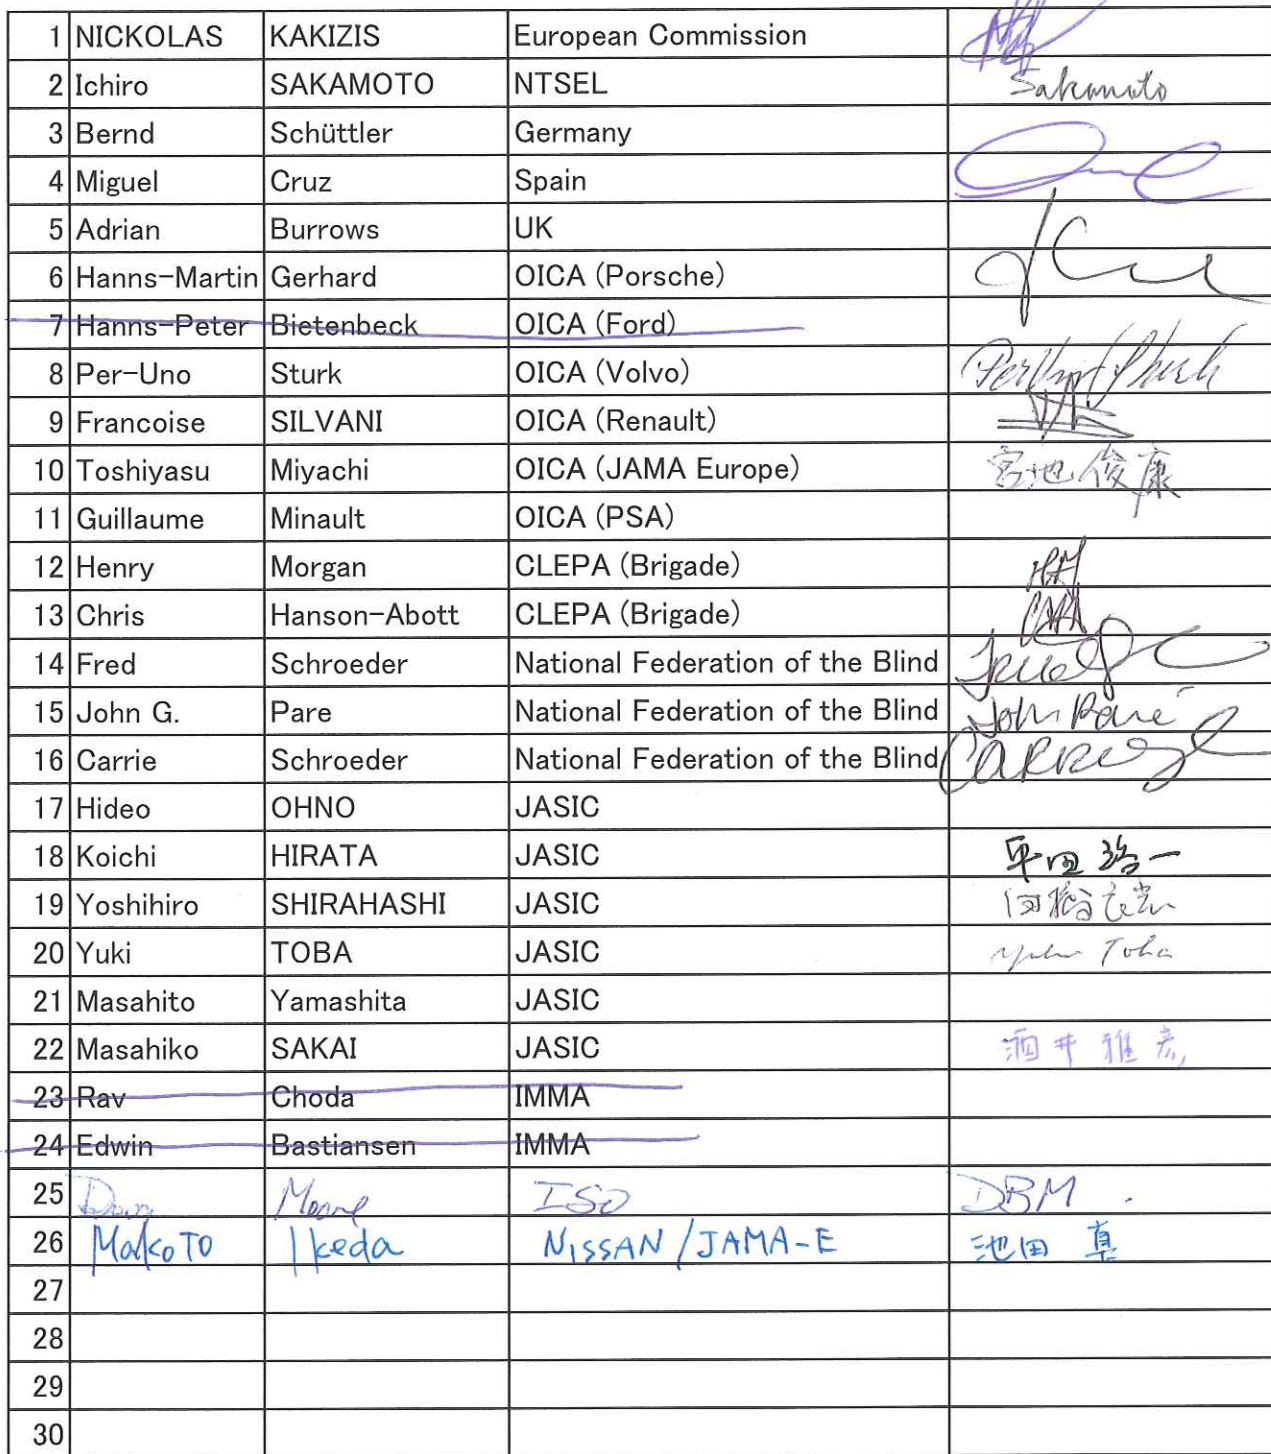 1 NICKOLAS KAKIZIS European Commission
2 Ichiro SAKAMOTO NTSEL Sakamoto
3 Bernd Schüttler Germany
4 Miguel Cruz Spain
5 Adrian Burrows UK
6 Hanns-Martin Gerhard OICA (Porsche)
7 Hanns-Peter Bietenbeck OICA (Ford)
8 Per-Uno Sturk OICA (Volvo)
9 Francoise SILVANI OICA (Renault)
10 Toshiyasu Miyachi OICA (JAMA Europe) 宮地俊康
11 Guillaume Minault OICA (PSA)
12 Henry Morgan CLEPA (Brigade)
13 Chris Hanson-Abott CLEPA (Brigade)
14 Fred Schroeder National Federation of the Blind
15 John G. Pare National Federation of the Blind John Paré
16 Carrie Schroeder National Federation of the Blind
17 Hideo OHNO JASIC
18 Koichi HIRATA JASIC 平田 一
19 Yoshihiro SHIRAHASHI JASIC
20 Yuki TOBA JASIC Toba
21 Masahito Yamashita JASIC
22 Masahiko SAKAI JASIC 酒井雅彦
23 Rav Choda IMMA
24 Edwin Bastiansen IMMA
25 Moore ISO DBM.
26 MakoTo Ikeda NISSAN/JAMA-E 池田 真
27
28
29
30